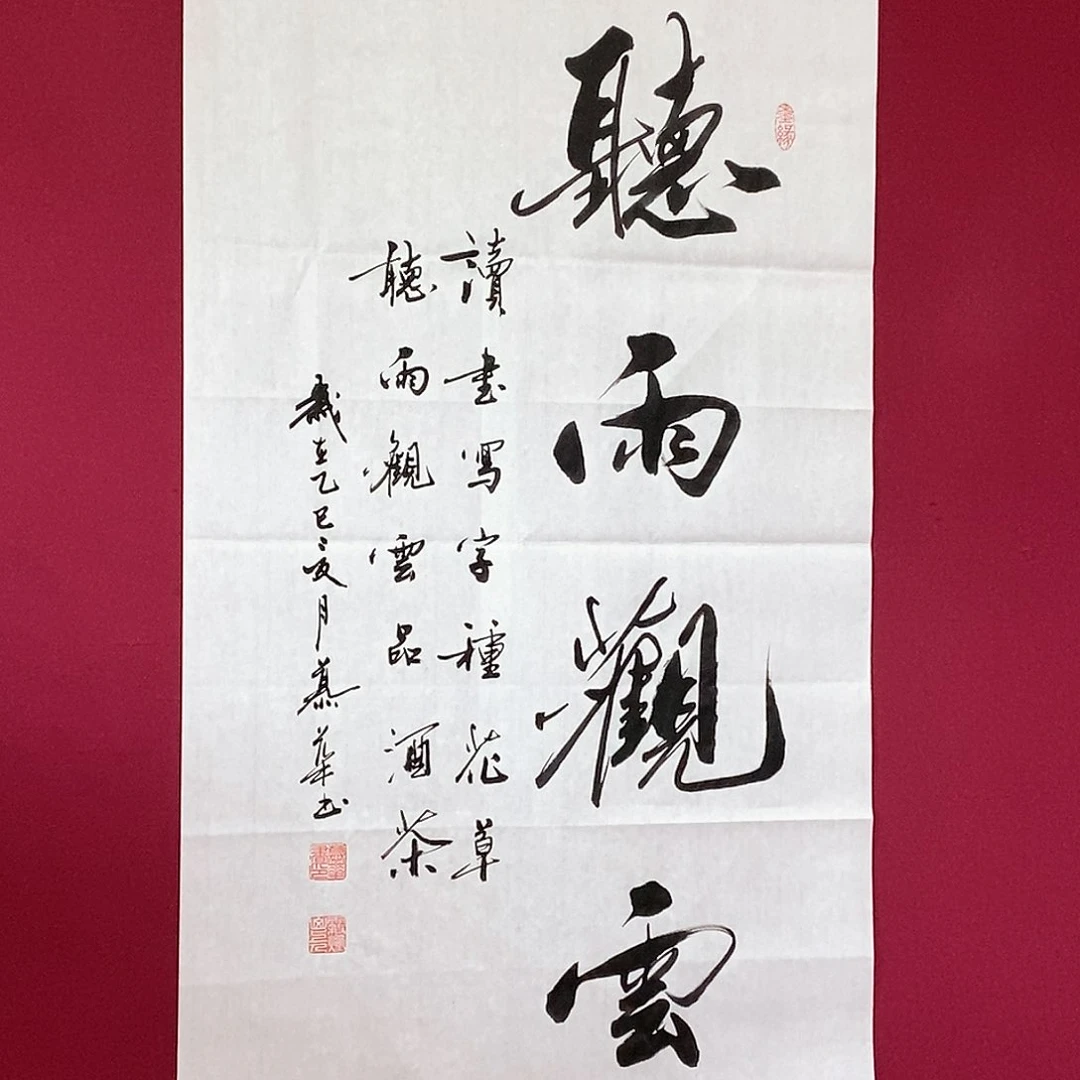 聽雨觀雲
讀書寫字種花草
聽雨觀雲品酒茶
歲在乙巳之夏月慕華书
墨緣